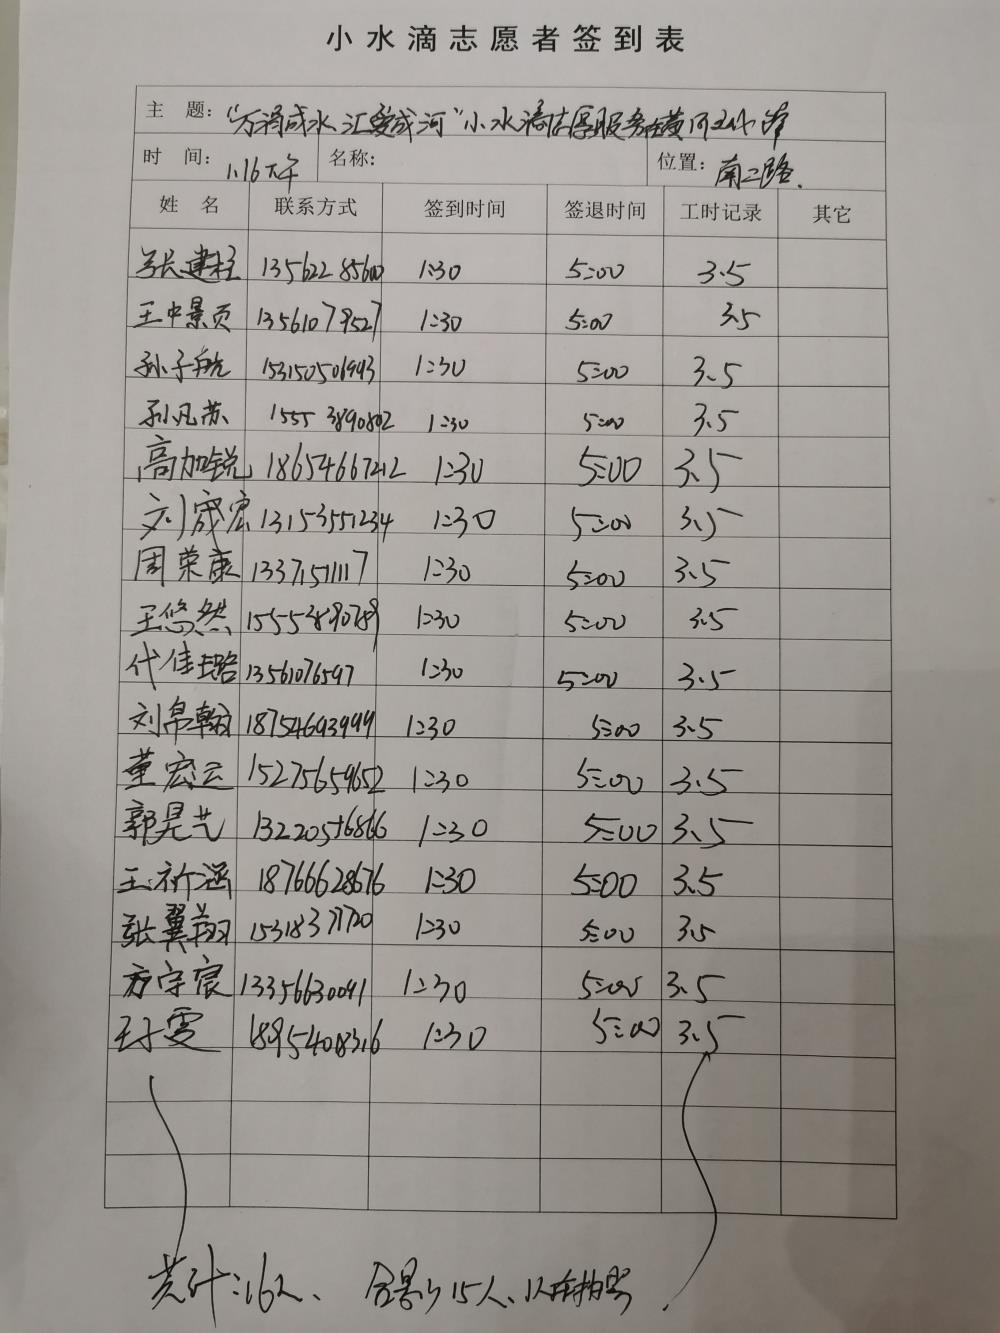 小水滴志愿者签到表
主 题： “万滴成水 汇爱成河”小水滴志愿服务在黄河文化
时 间： 1.16下午 名称： 位置： 南二路.
姓 名 联系方式 签到时间 签退时间 工时记录 其它
张建柱 13562285600 1:30 5:00 3.5
王中景页 13561079527 1:30 5:00 3.5
孙子航 15315050 1:30 5:00 3.5
孙凡苏 15553890802 1:30 5:00 3.5
高加锐 18654667212 1:30 5:00 3.5
刘宬宏 13153551234 1:30 5:00 3.5
周荣康 13371511117 1:30 5:00 3.5
王悠然 15553890789 1:30 5:00 3.5
代佳璐 13561076597 1:30 5:00 3.5
刘帛翰 18754693999 1:30 5:00 3.5
董宏云 15275659652 1:30 5:00 3.5
郭昊艺 13220546866 1:30 5:00 3.5
王祈涵 18766628676 1:30 5:00 3.5
张翼翔 15318371720 1:30 5:00 3.5
方宇宸 13356630091 1:30 5:00 3.5
王子雯 18954068316 1:30 5:00 3.5
共计:16人、 合影 15人、1人在拍照.